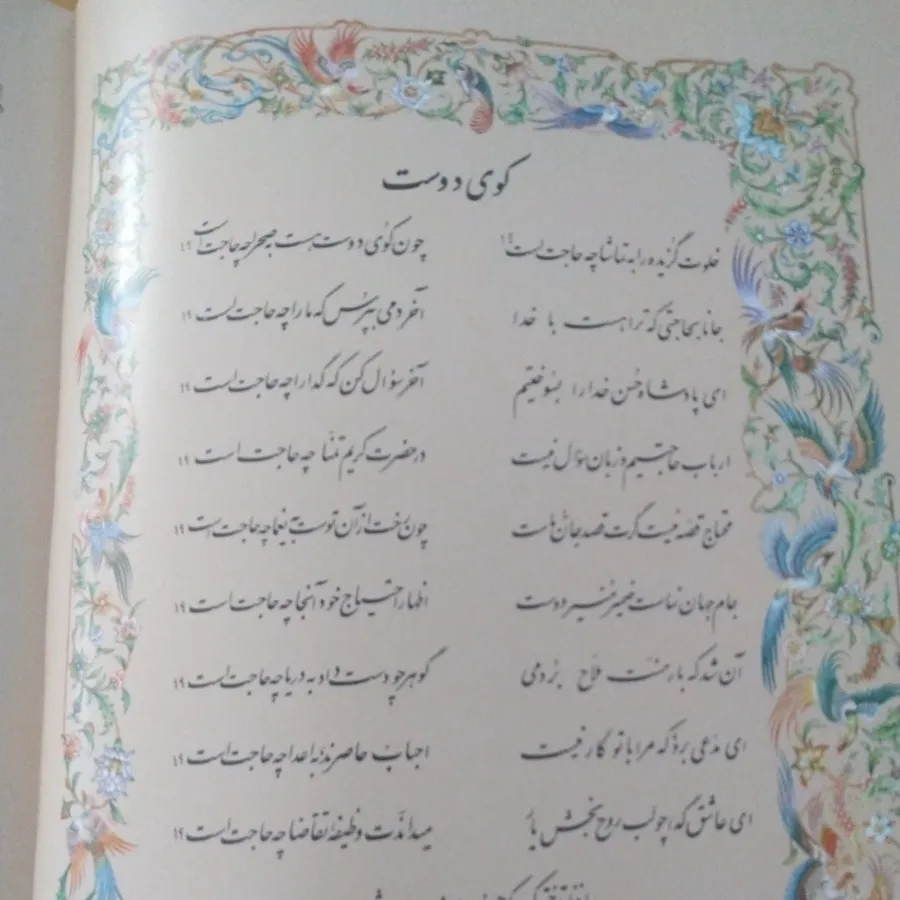 کوی دوست
خلوت گزیده را به تماشا چه حاجت است؟! چون کوی دوست هست بصحرا چه حاجت است؟!
جانا بحاجتی که ترا هست با خدا آخر دمی بپرس که ما را چه حاجت است؟!
ای پادشاه حُسن خدا را بسوختیم آخر سؤال کن که گدا را چه حاجت است؟!
ارباب حاجتیم و زبان سؤال نیست در حضرت کریم تمنّا چه حاجت است؟!
محتاج قصّه نیست گرت قصد جان ماست چون رخت از آن توست به یغما چه حاجت است؟!
جام جهان نماست ضمیر منیر دوست اظهار احتیاج خود آنجا چه حاجت است؟!
آن شد که بار منّت ملّاح بُردمی گوهر چو دست داد به دریا چه حاجت است؟!
ای مدّعی برو که مرا با تو کار نیست احباب حاضرند به اعدا چه حاجت است؟!
ای عاشق گدا چو لب روح بخش یار میداندت وظیفه تقاضا چه حاجت است؟!